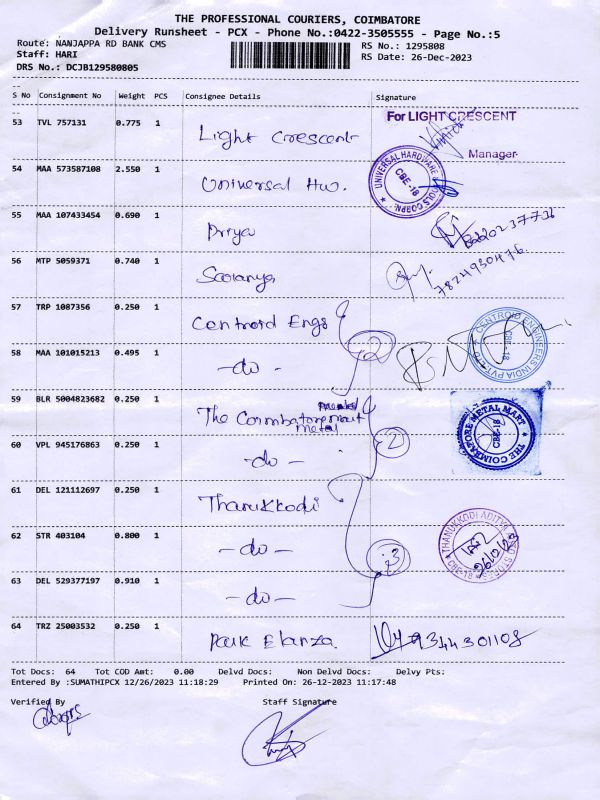 THE PROFESSIONAL COURIERS, COIMBATORE
Delivery Runsheet - PCX - Phone No.:0422-3505555 - Page No.:5
Route: NANJAPPA RD BANK CMS
RS No.: 1295808
Staff: HARI
RS Date: 26-Dec-2023
DRS No.: DCJB129580805
S No Consignment No Weight PCS Consignee Details Signature
53 TVL 757131 0.775 1 Light Crescent For LIGHT CRESCENT
Manager
54 MAA 573587108 2.550 1 Universal Hw. UNIVERSAL HARDWARE & TOOLS CORPN. CBE-18
55 MAA 107433454 0.690 1 Priya
56 MTP 5059371 0.740 1 Saranya 7824930476
57 TRP 1087356 0.250 1 Centroid Engs CENTROID ENGINEERS INDIA PVT LTD CBE-18
58 MAA 101015213 0.495 1 -do- 2
59 BLR 5004823682 0.250 1 The Coimbatore mart
Metal THE COIMBATORE METAL MART CBE-18
60 VPL 945176863 0.250 1 -do- 2
61 DEL 121112697 0.250 1 Thanukkodi
62 STR 403104 0.800 1 -do- 3 THANUKKODI ADITYA AND STORES CBE-18
63 DEL 529377197 0.910 1 -do-
64 TRZ 25003532 0.250 1 Park Elanza. 9344301108
Tot Docs: 64 Tot COD Amt: 0.00 Delvd Docs: Non Delvd Docs: Delvy Pts:
Entered By :SUMATHIPCX 12/26/2023 11:18:29 Printed On: 26-12-2023 11:17:48
Verified By Staff Signature